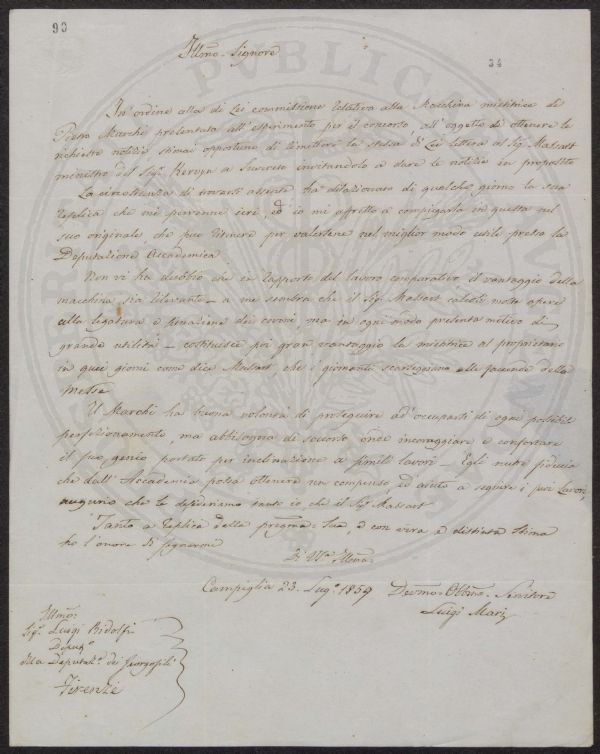 93
34
Illmo. Signore
In' ordine alla di Lei commissione relativa alla Macchina mietitrice di
Pietro Marchi presentata all'esperimento per il concorso, all'oggetto di ottenere le
richieste notizie stimai opportuno di rimettere la stessa di Lei lettera al Sigr. Massart
ministro del Sigr. Kervyn a Suvereto invitandolo a dare le notizie in proposito
La circostanza di trovarsi assente ha dilazionato di qualche giorno la sua
replica che mi pervenne ieri, ed' io mi affretto a compiegarla in questa nel
suo originale, che può ritenere per valersene nel miglior modo utile presso la
Deputazione Accademica
Non vi ha dubbio che in rapporto del lavoro comparativo il vantaggio della
macchina sia rilevante – a me sembra che il Sigr. Massart calcoli molte opere
alla legatura e formazione dei covoni, ma in ogni modo presenta motivo di
grande utilità – costituisce poi gran vantaggio la mietitrice al proprietario
in quei giorni come dice Massart, che i giornanti scarseggiano alle faccende della
Messe
Il Marchi ha buona volontà di proseguire ad' occuparsi di ogni possibil
perfezionamento, ma abbisogna di soccorso onde incoraggiare e confortare
il suo genio portato per inclinazione a simili lavori – Egli nutre fiducia
che dall' Accademia possa ottenere un compenso ed' aiuto a seguire i suoi lavori,
auguro che lo desideriamo tanto io, che il Sigr. Massart
Tanto a replica della pregma. Sua, e con vera e distinta stima
ho l'onore di segnarmi
Di VS. Illma.
Campiglia 23. Lugo. 1859
Devmo. Obbmo. Servitore
Luigi Mari
Illmo:
Sigr. Luigi Ridolfi
Deputo.
Alla Deputazne. dei Georgofili
Firenze